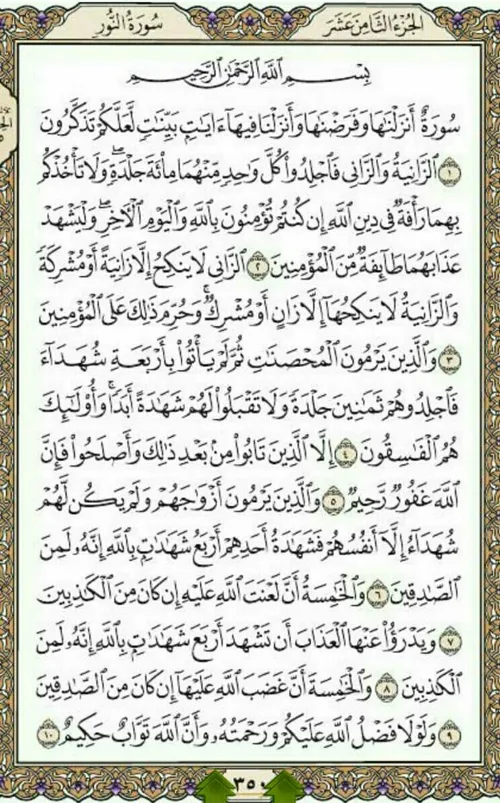 الجزء الثامن عشر
سورة النور
بِسْمِ ٱللَّهِ ٱلرَّحْمَٰنِ ٱلرَّحِيمِ
سُورَةٌ أَنزَلْنَٰهَا وَفَرَضْنَٰهَا وَأَنزَلْنَا فِيهَآ ءَايَٰتٍۭ بَيِّنَٰتٍ لَّعَلَّكُمْ تَذَكَّرُونَ
١ ٱلزَّانِيَةُ وَٱلزَّانِى فَٱجْلِدُوا۟ كُلَّ وَٰحِدٍ مِّنْهُمَا مِا۟ئَةَ جَلْدَةٍ ۖ وَلَا تَأْخُذْكُم
بِهِمَا رَأْفَةٌ فِى دِينِ ٱللَّهِ إِن كُنتُمْ تُؤْمِنُونَ بِٱللَّهِ وَٱلْيَوْمِ ٱلْءَاخِرِ ۖ وَلْيَشْهَدْ
عَذَابَهُمَا طَآئِفَةٌ مِّنَ ٱلْمُؤْمِنِينَ ٢ ٱلزَّانِى لَا يَنكِحُ إِلَّا زَانِيَةً أَوْ مُشْرِكَةً
وَٱلزَّانِيَةُ لَا يَنكِحُهَآ إِلَّا زَانٍ أَوْ مُشْرِكٌ ۚ وَحُرِّمَ ذَٰلِكَ عَلَى ٱلْمُؤْمِنِينَ
٣ وَٱلَّذِينَ يَرْمُونَ ٱلْمُحْصَنَٰتِ ثُمَّ لَمْ يَأْتُوا۟ بِأَرْبَعَةِ شُهَدَآءَ
فَٱجْلِدُوهُمْ ثَمَٰنِينَ جَلْدَةً وَلَا تَقْبَلُوا۟ لَهُمْ شَهَٰدَةً أَبَدًا ۚ وَأُو۟لَٰٓئِكَ
هُمُ ٱلْفَٰسِقُونَ ٤ إِلَّا ٱلَّذِينَ تَابُوا۟ مِنۢ بَعْدِ ذَٰلِكَ وَأَصْلَحُوا۟ فَإِنَّ
ٱللَّهَ غَفُورٌ رَّحِيمٌ ٥ وَٱلَّذِينَ يَرْمُونَ أَزْوَٰجَهُمْ وَلَمْ يَكُن لَّهُمْ
شُهَدَآءُ إِلَّآ أَنفُسُهُمْ فَشَهَٰدَةُ أَحَدِهِمْ أَرْبَعُ شَهَٰدَٰتٍۭ بِٱللَّهِ ۙ إِنَّهُۥ لَمِنَ
ٱلصَّٰدِقِينَ ٦ وَٱلْخَٰمِسَةُ أَنَّ لَعْنَتَ ٱللَّهِ عَلَيْهِ إِن كَانَ مِنَ ٱلْكَٰذِبِينَ
٧ وَيَدْرَؤُا۟ عَنْهَا ٱلْعَذَابَ أَن تَشْهَدَ أَرْبَعَ شَهَٰدَٰتٍۭ بِٱللَّهِ ۙ إِنَّهُۥ لَمِنَ
ٱلْكَٰذِبِينَ ٨ وَٱلْخَٰمِسَةَ أَنَّ غَضَبَ ٱللَّهِ عَلَيْهَآ إِن كَانَ مِنَ ٱلصَّٰدِقِينَ
٩ وَلَوْلَا فَضْلُ ٱللَّهِ عَلَيْكُمْ وَرَحْمَتُهُۥ وَأَنَّ ٱللَّهَ تَوَّابٌ حَكِيمٌ ١٠
٣٥٠